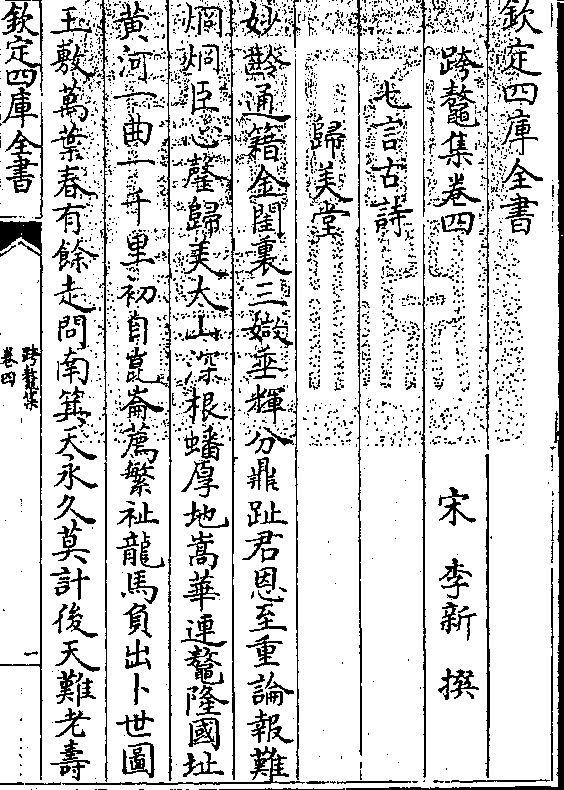 欽定四庫全書
跨鼇集卷四
宋 李新 撰
七言古詩
歸美堂
妙齡通籍金閨裏三嶽垂輝分鼎趾君恩至重論報難
炯炯臣心罄歸美太山深根蟠厚地嵩華連鼇隆國址
黄河一曲一千里初自崑崙薦繁祉龍馬負出卜世圖
玉敷萬葉春有餘走問南箕天永久莫計後天難老壽
欽定四庫全書
跨鼇集
卷四
一